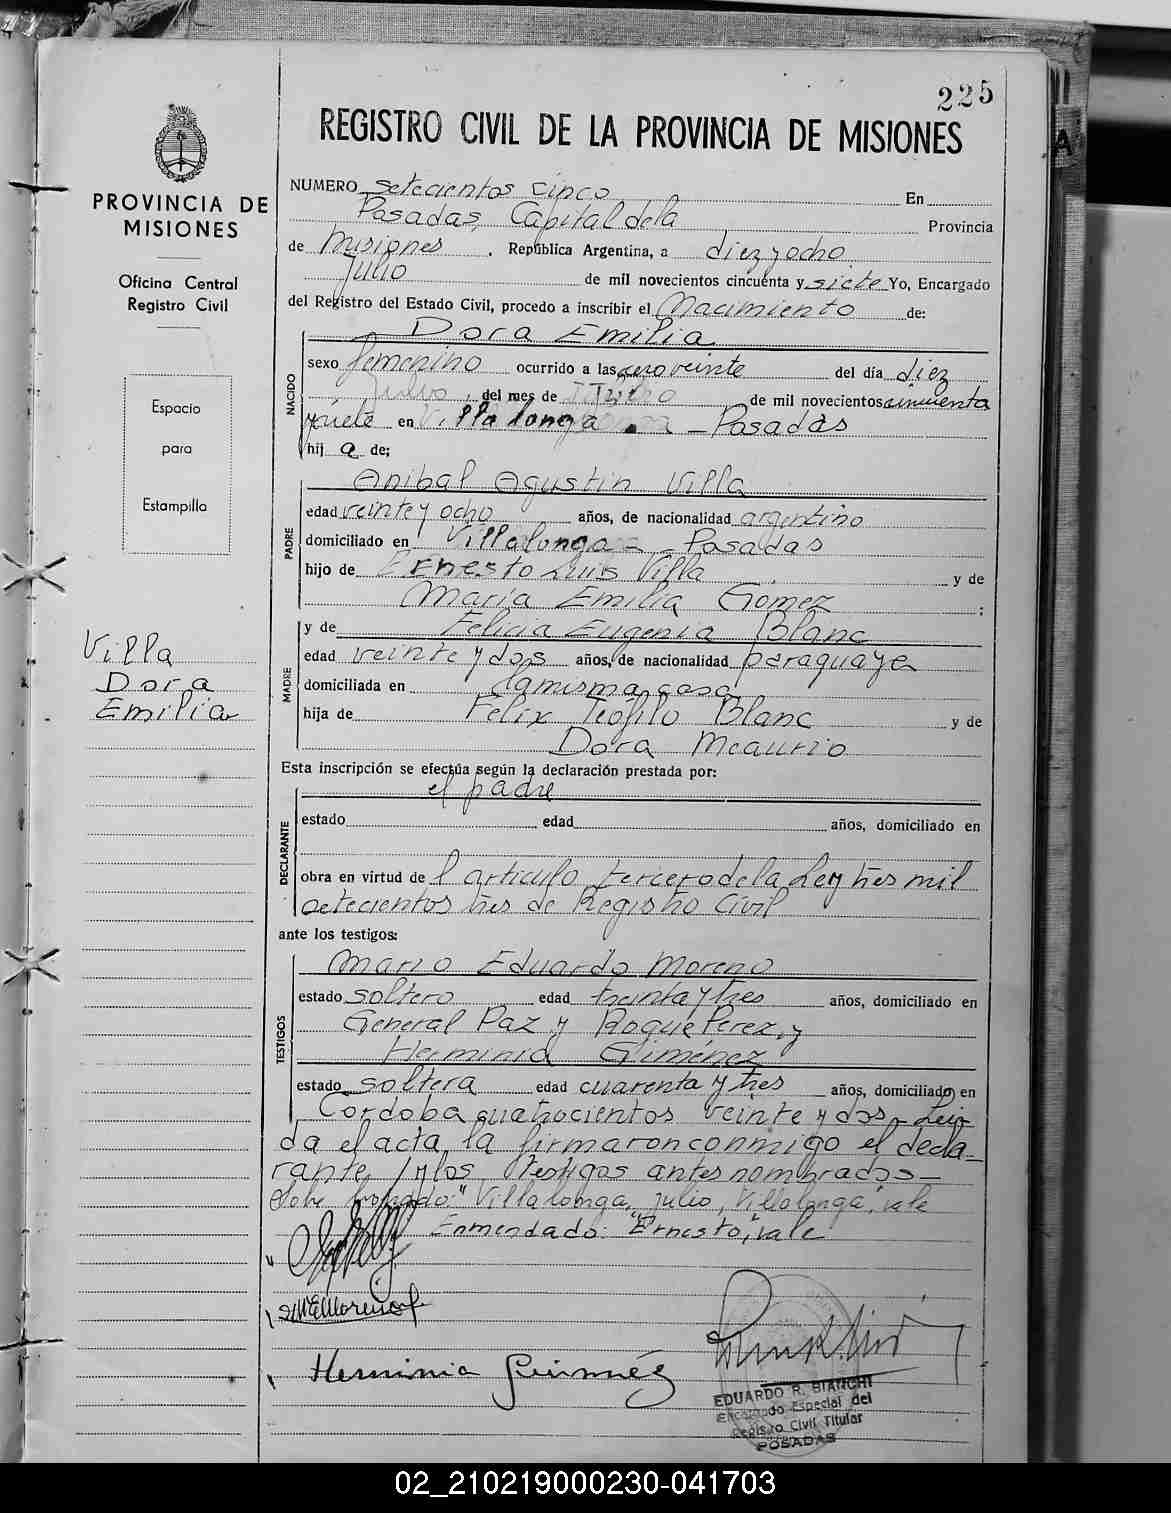 225
REGISTRO CIVIL DE LA PROVINCIA DE MISIONES
PROVINCIA DE
MISIONES
Oficina Central
Registro Civil
Espacio
para
Estampilla
Villa
Dora
Emilia
NUMERO setecientos cinco En
Posadas, Capital de la Provincia
de Misiones. República Argentina, a diez y ocho
Julio de mil novecientos cincuenta y siete Yo, Encargado
del Registro del Estado Civil, procedo a inscribir el Nacimiento de:
Dora Emilia
NACIDO
sexo femenino ocurrido a las cero veinte del día diez
Julio, del mes de Julio de mil novecientos cincuenta
y siete en Villalonga - Posadas
hij a de;
PADRE
Anibal Agustin Villa
edad veinte y ocho años, de nacionalidad argentino
domiciliado en Villalonga - Posadas
hijo de Ernesto Luis Villa y de
Maria Emilia Gomez ;
MADRE
y de Felicia Eugenia Blanc
edad veinte y dos años, de nacionalidad paraguaya
domiciliada en la misma casa
hija de Felix Teófilo Blanc y de
Dora Meaurio
Esta inscripción se efectúa según la declaración prestada por:
DECLARANTE
el padre
estado edad años, domiciliado en
obra en virtud de l articulo tercero de la Ley tres mil
setecientos tres de Registro Civil
ante los testigos:
TESTIGOS
Mario Eduardo Moreno
estado soltero edad treinta y tres años, domiciliado en
General Paz y Roque Perez, y
Herminia Giménez
estado soltera edad cuarenta y tres años, domiciliado en
Cordoba cuatrocientos veinte y dos - Lei-
da el acta la firmaron conmigo el decla-
rante y los testigos antes nombrados-
Sobre borrado: "Villalonga, julio, Villalonga", vale
Enmendado: "Ernesto", vale
MEMoreno
Herminia Giménez
EDUARDO R. BIANCHI
Encargado Especial del
Registro Civil Titular
POSADAS
02_210219000230-041703